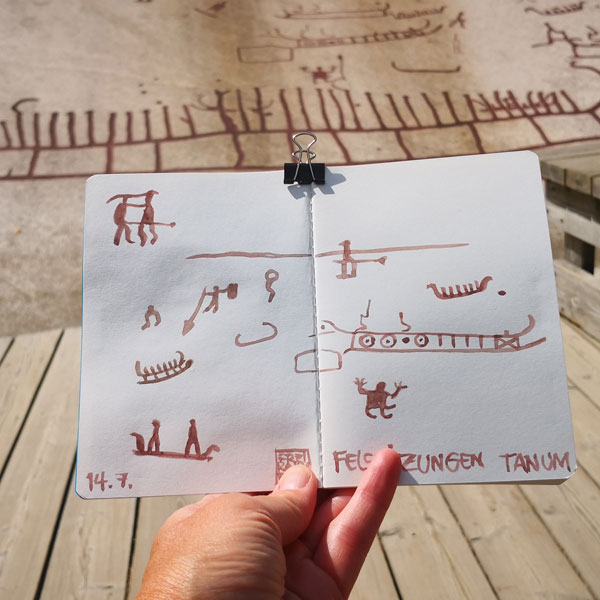 14. 7.
FELSRITZUNGEN TANUM